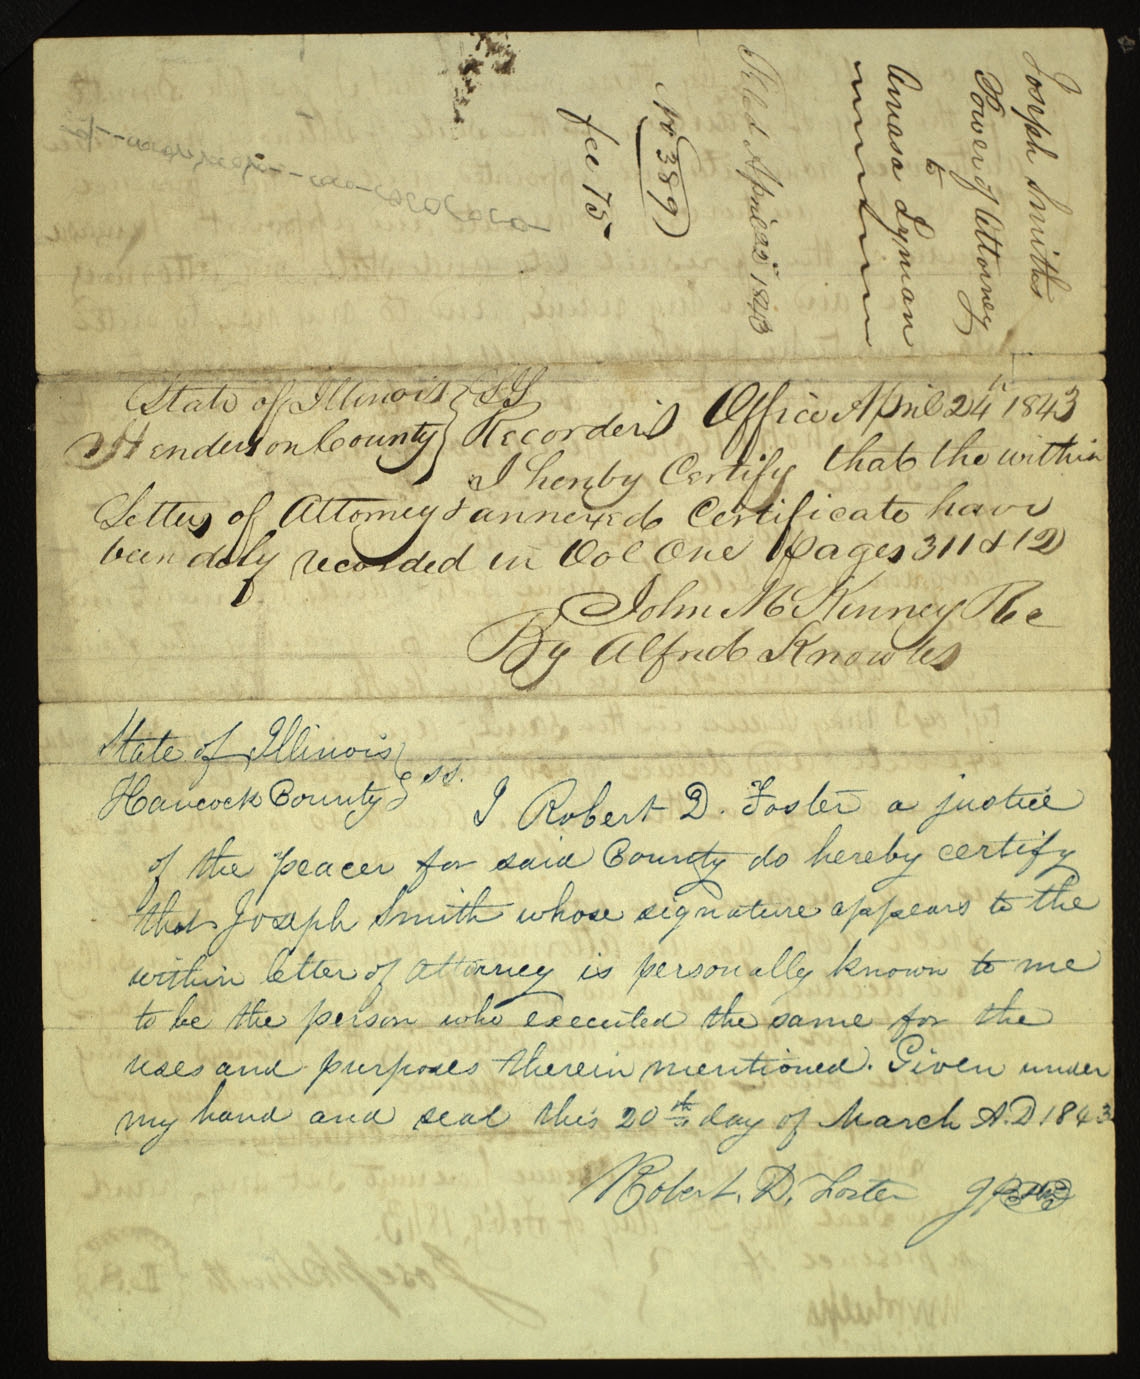 Joseph Smiths
Power of Attorney
to
Amasa Lyman
Filed April 22d 1843
No 389
fee 75
State of Illinois } SS
Henderson County } Recorder's Office April 24th 1843
I hereby Certify that the within
Letter of Attorney & annexed Certificate have
been duly recorded in Vol One Pages 311 & 12
John McKinney Rec
By Alfred Knowles
State of Illinois }
Hancock County } ss. I Robert D. Foster a justice
of the peacer for said County do hereby certify
that Joseph Smith whose signature appears to the
within letter of attorney is personally known to me
to be the person who executed the same for the
uses and purposes therein mentioned. Given under
my hand and seal this 20th day of March A.D 1843
Robert. D. Foster J P